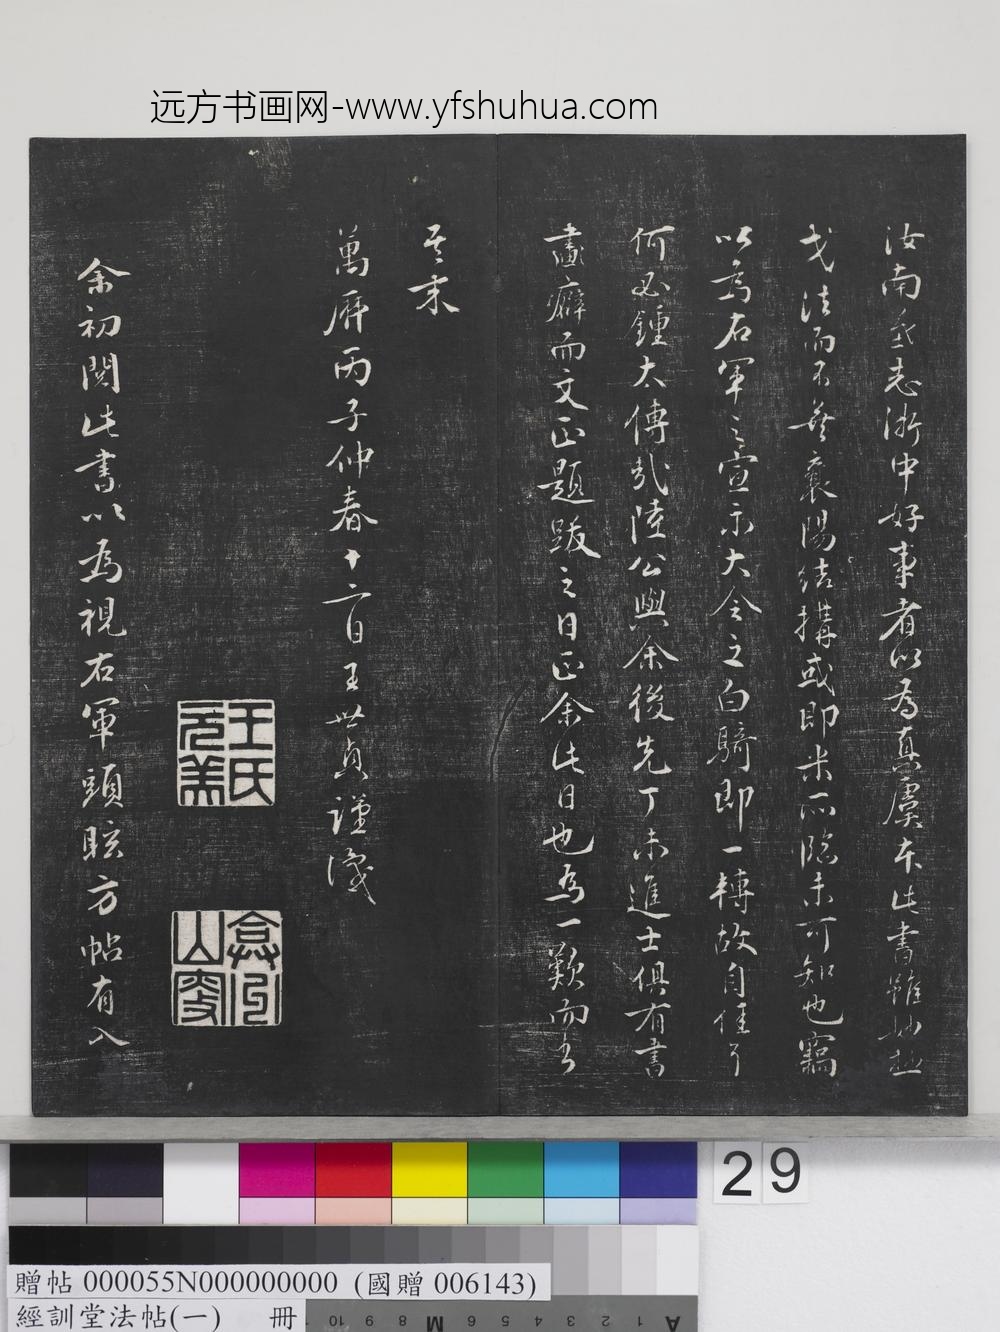 远方书画网-www.yfshuhua.com
汝南公志浙中好事者以為真虞本此書雖妙極
戈法而不無襄陽結搆或即米所臨未可知也竊
以為右軍之宣示大令之白騎即一轉故自佳耳
何必鍾太傅哉陸公與余後先丁未進士俱有書
畫癖而文正題跋之日正余此日也為一歎而書
其末
萬曆丙子仲春十二日王世貞謹識
王氏元美
弇州山
余初閱此書以為視右軍頭眩方帖有入
29
贈帖 000055N000000000 (國贈 006143)
經訓堂法帖(一) 冊
10 9 8 M 6 5 4 3 2 1 A